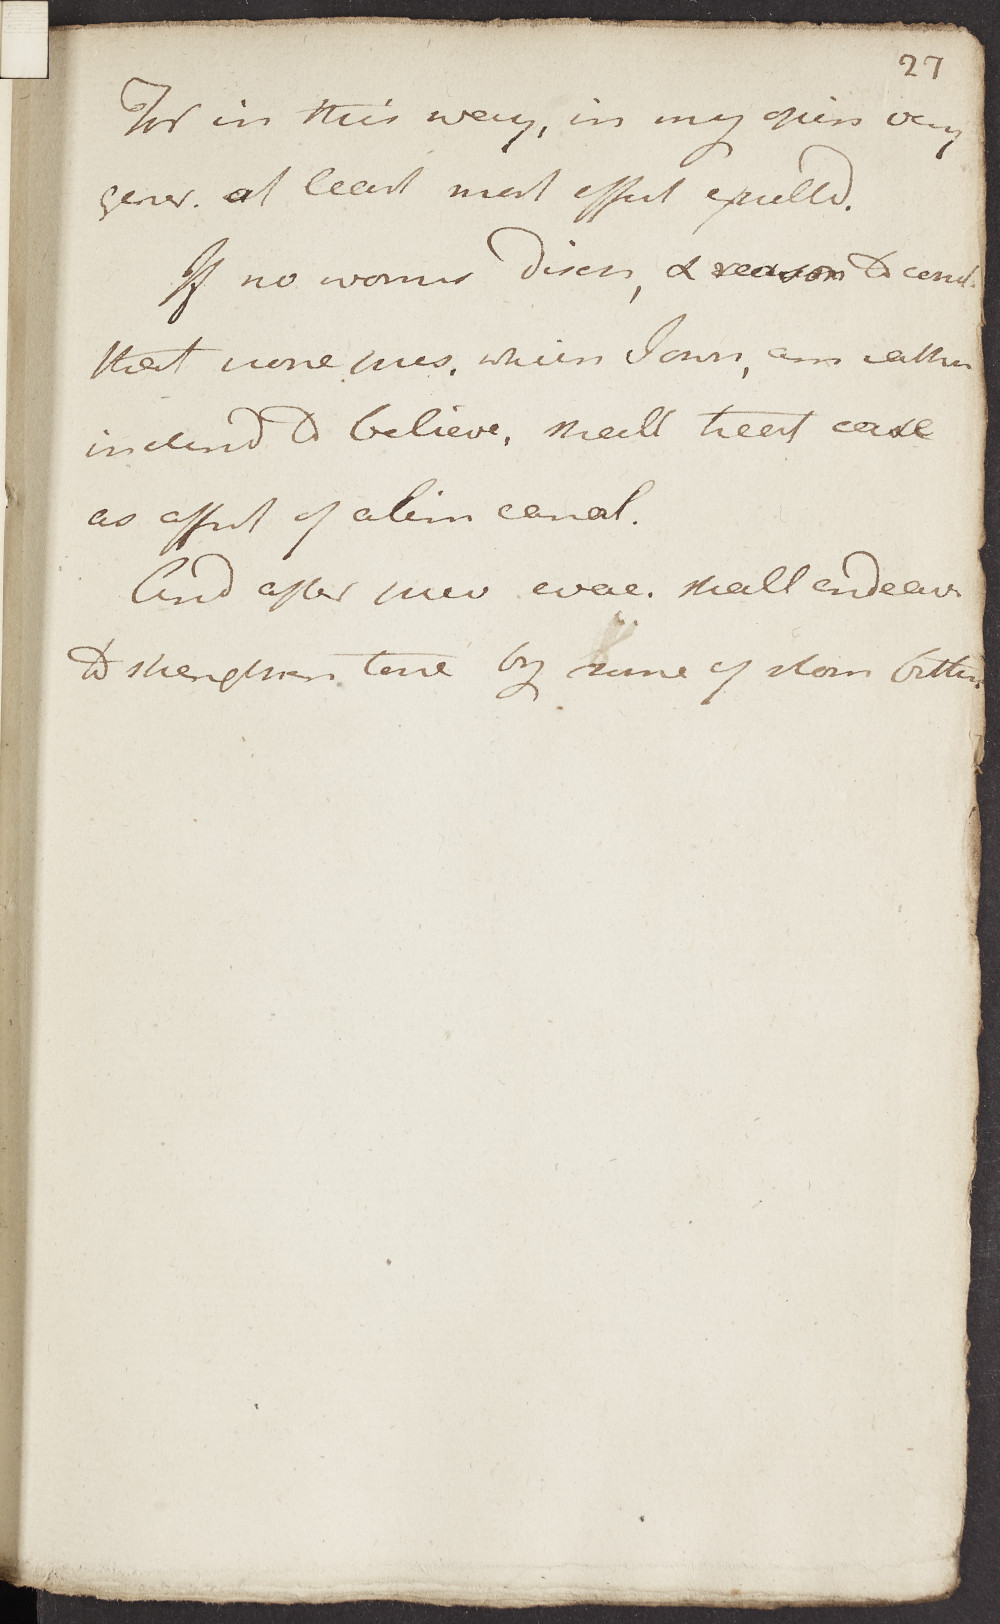 27
For in this way, in my opin very
gener. at least most effect expelld.
If no worms discn, & reason to concl.
that none pres. which I own, am rather
inclind to believe, shall treat case
as affect of alim canal.
And after prev evac. shall endeavr
to strengthen tone by some of stom bitters